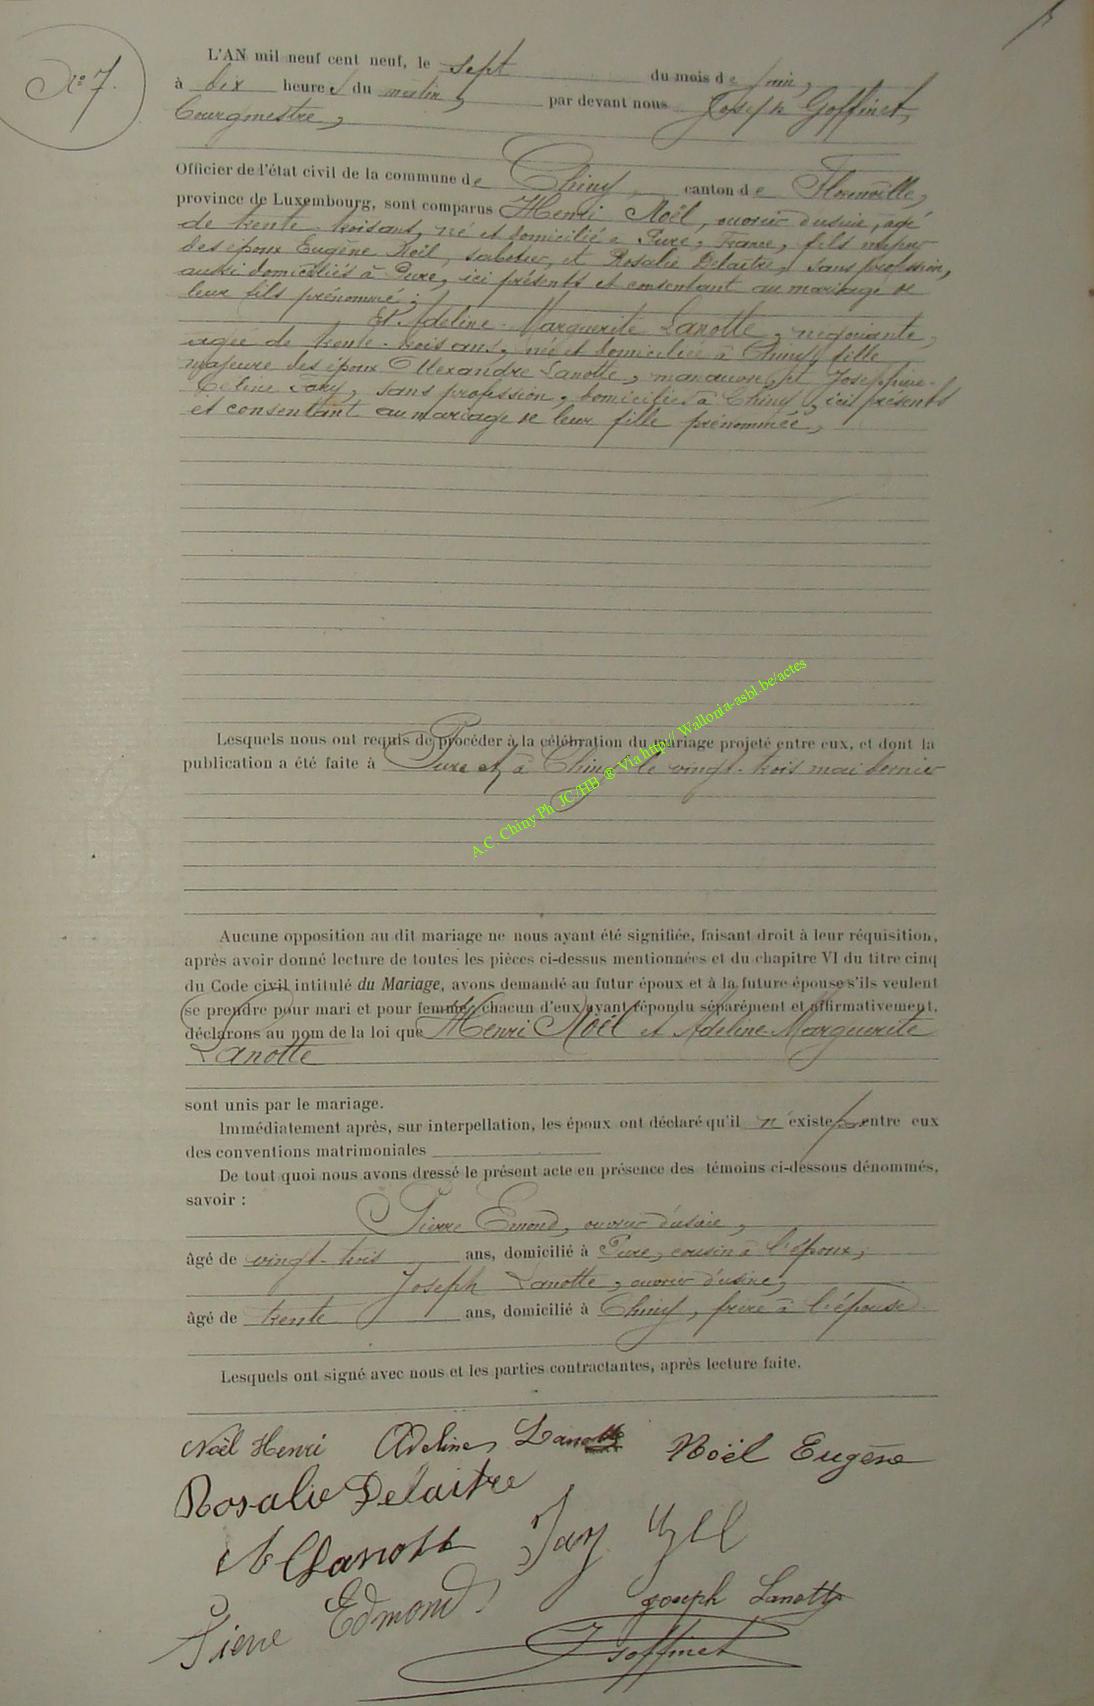 N° 7.
L'AN mil neuf cent neuf, le sept du mois de juin,
à dix heures du matin, par devant nous Joseph Goffinet,
bourgmestre,
Officier de l'état civil de la commune de Chiny, canton de Florenville,
province de Luxembourg, sont comparus Henri Noël, ouvrier d'usine, âgé
de trente-trois ans, né et domicilié à Pure, France, fils majeur
des époux Eugène Noël, sabotier, et Rosalie Delaitre, sans profession,
aussi domiciliés à Pure, ici présents et consentant au mariage de
leur fils prénommé;
Et Adeline-Marguerite Lanotte, négociante,
agée de trente-trois ans, née et domiciliée à Chiny, fille
majeure des époux Alexandre Lanotte, manœuvre, et Joséphine-
Céline Jary, sans profession, domiciliés à Chiny, ici présents
et consentant au mariage de leur fille prénommée,
Lesquels nous ont requis de procéder à la célébration du mariage projeté entre eux, et dont la
publication a été faite à Pure et à Chiny le vingt-trois mai dernier
A.C. Chiny Ph JC/HB ® Via http:// Wallonia-asbl.be/actes
Aucune opposition au dit mariage ne nous ayant été signifiée, faisant droit à leur réquisition,
après avoir donné lecture de toutes les pièces ci-dessus mentionnées et du chapitre VI du titre cinq
du Code civil intitulé du Mariage, avons demandé au futur époux et à la future épouse s'ils veulent
se prendre pour mari et pour femme; chacun d'eux ayant répondu séparément et affirmativement,
déclarons au nom de la loi que Henri Noël et Adeline-Marguerite
Lanotte
sont unis par le mariage.
Immédiatement après, sur interpellation, les époux ont déclaré qu'il n'existe pas entre eux
des conventions matrimoniales
De tout quoi nous avons dressé le présent acte en présence des témoins ci-dessous dénommés,
savoir :
Pierre Emond, ouvrier d'usine,
âgé de vingt-trois ans, domicilié à Pure, cousin à l'époux,
Joseph Lanotte, ouvrier d'usine,
âgé de trente ans, domicilié à Chiny, frère à l'épouse
Lesquels ont signé avec nous et les parties contractantes, après lecture faite.
Noël Henri Adeline Lanotte Noël Eugène
Rosalie Delaitre
Lanotte Jary
Pierre Edmond Joseph Lanotte
J Goffinet